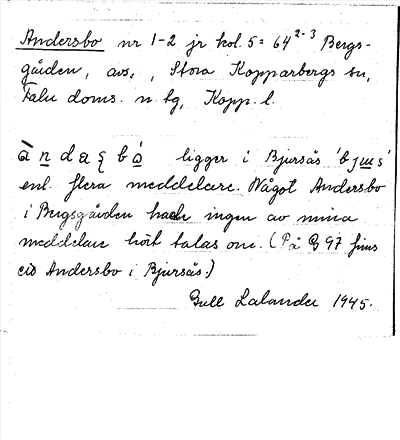 Andersbo nr 1-2 jr kol. 5 = 64²⁻³ Bergs-
gården, avs., Stora Kopparbergs sn,
Falu doms. n. tg, Kopp. l.
ligger i Bjursås
enl. flera meddelare. Något Andersbo
i Bergsgården hade ingen av mina
meddelare hört talas om. (På 97 finns
Andersbo i Bjursås.)
Lalander 1945.